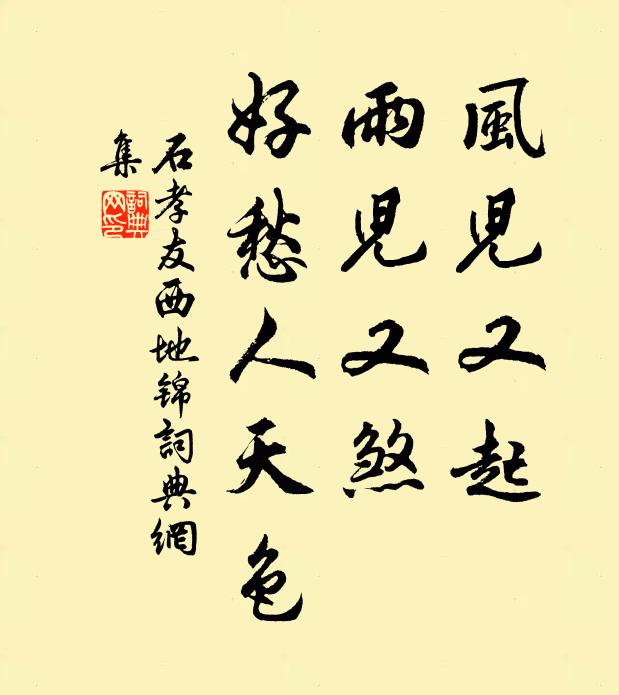 風兒又起
雨兒又煞
好愁人天色
石孝友西地錦詞典網
集
詞典
网印